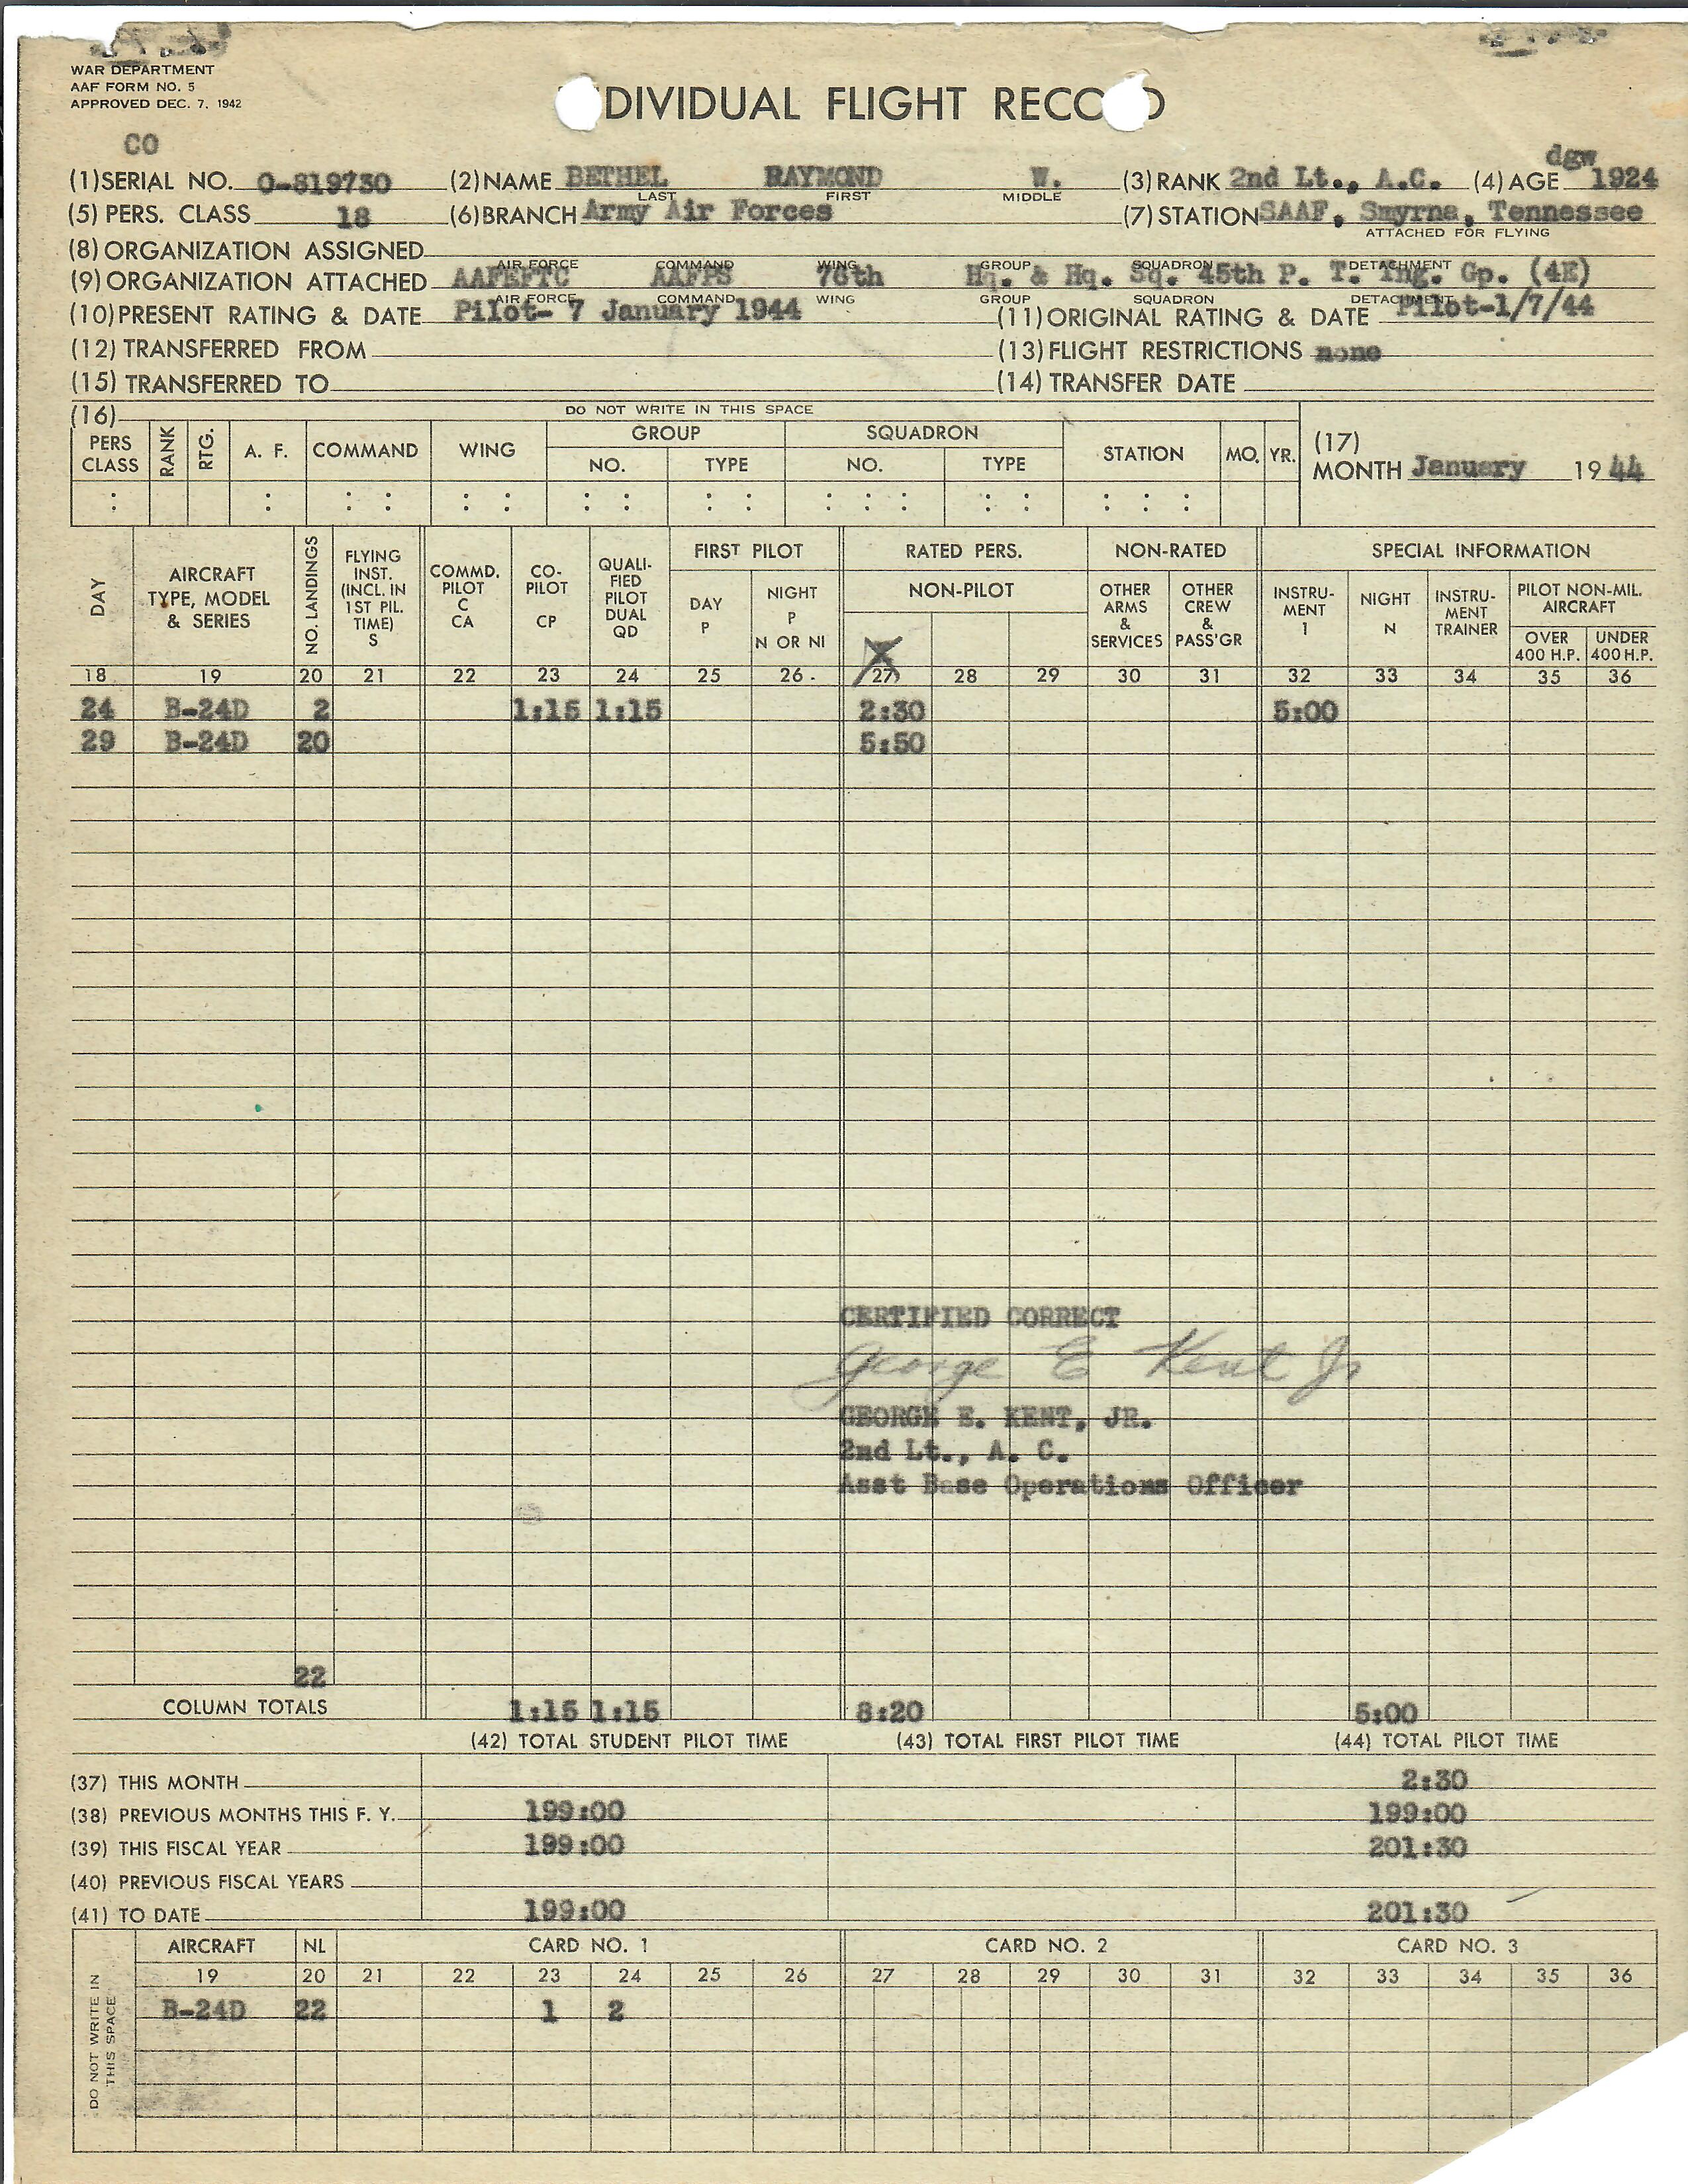 WAR DEPARTMENT
AAF FORM NO. 5
APPROVED DEC. 7, 1942
DIVIDUAL FLIGHT RECO D
CO
dgw
(1) SERIAL NO. O-819730 (2) NAME BETHEL RAYMOND W. (3) RANK 2nd Lt., A.C. (4) AGE 1924
LAST FIRST MIDDLE
(5) PERS. CLASS 18 (6) BRANCH Army Air Forces (7) STATION SAAF, Smyrna, Tennessee
ATTACHED FOR FLYING
(8) ORGANIZATION ASSIGNED
AIR FORCE COMMAND WING GROUP SQUADRON DETACHMENT
(9) ORGANIZATION ATTACHED AAFEFTC AAFPS 76th Hq. & Hq. Sq. 45th P. T. Tng. Gp. (4E)
AIR FORCE COMMAND WING GROUP SQUADRON DETACHMENT
(10) PRESENT RATING & DATE Pilot- 7 January 1944 (11) ORIGINAL RATING & DATE Pilot-1/7/44
(12) TRANSFERRED FROM (13) FLIGHT RESTRICTIONS none
(15) TRANSFERRED TO (14) TRANSFER DATE
(16) DO NOT WRITE IN THIS SPACE
PERS CLASS RANK RTG. A. F. COMMAND WING GROUP NO. TYPE SQUADRON NO. TYPE STATION MO. YR.
(17)
MONTH January 1944
DAY AIRCRAFT TYPE, MODEL & SERIES NO. LANDINGS FLYING INST. (INCL. IN 1ST PIL. TIME) S COMMD. PILOT C CA CO-PILOT CP QUALI-FIED PILOT DUAL QD FIRST PILOT DAY P NIGHT P N OR NI RATED PERS. NON-PILOT NON-RATED OTHER ARMS & SERVICES OTHER CREW & PASS'GR SPECIAL INFORMATION INSTRU-MENT I NIGHT N INSTRU-MENT TRAINER PILOT NON-MIL. AIRCRAFT OVER 400 H.P. UNDER 400 H.P.
18 19 20 21 22 23 24 25 26 27 28 29 30 31 32 33 34 35 36
24 B-24D 2 1:15 1:15 2:30 5:00
29 B-24D 20 5:50
CERTIFIED CORRECT
George E Kent Jr
GEORGE E. KENT, JR.
2nd Lt., A. C.
Asst Base Operations Officer
22
COLUMN TOTALS 1:15 1:15 8:20 5:00
(42) TOTAL STUDENT PILOT TIME (43) TOTAL FIRST PILOT TIME (44) TOTAL PILOT TIME
(37) THIS MONTH 2:30
(38) PREVIOUS MONTHS THIS F. Y. 199:00 199:00
(39) THIS FISCAL YEAR 199:00 201:30
(40) PREVIOUS FISCAL YEARS
(41) TO DATE 199:00 201:30
DO NOT WRITE IN THIS SPACE
AIRCRAFT NL CARD NO. 1 CARD NO. 2 CARD NO. 3
19 20 21 22 23 24 25 26 27 28 29 30 31 32 33 34 35 36
B-24D 22 1 2